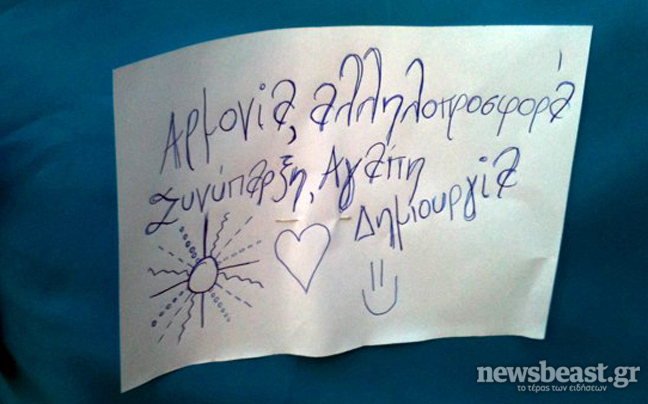 Αρμονία, αλληλοπροσφορά
Συνύπαρξη, Αγάπη
Δημιουργία
newsbeast.gr
το τέρας των ειδήσεων